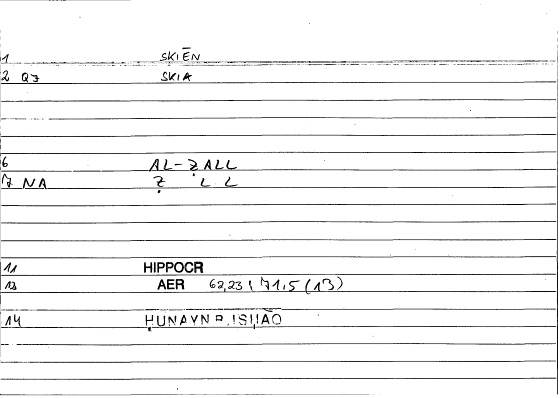 1 SKIĒN
2 QJ SKIA
6 AL-ẒALL
7 NA Ẓ L L
11 HIPPOCR
13 AER 62,23 / 71,5 (13)
14 ḤUNAYN B. ISḤĀQ